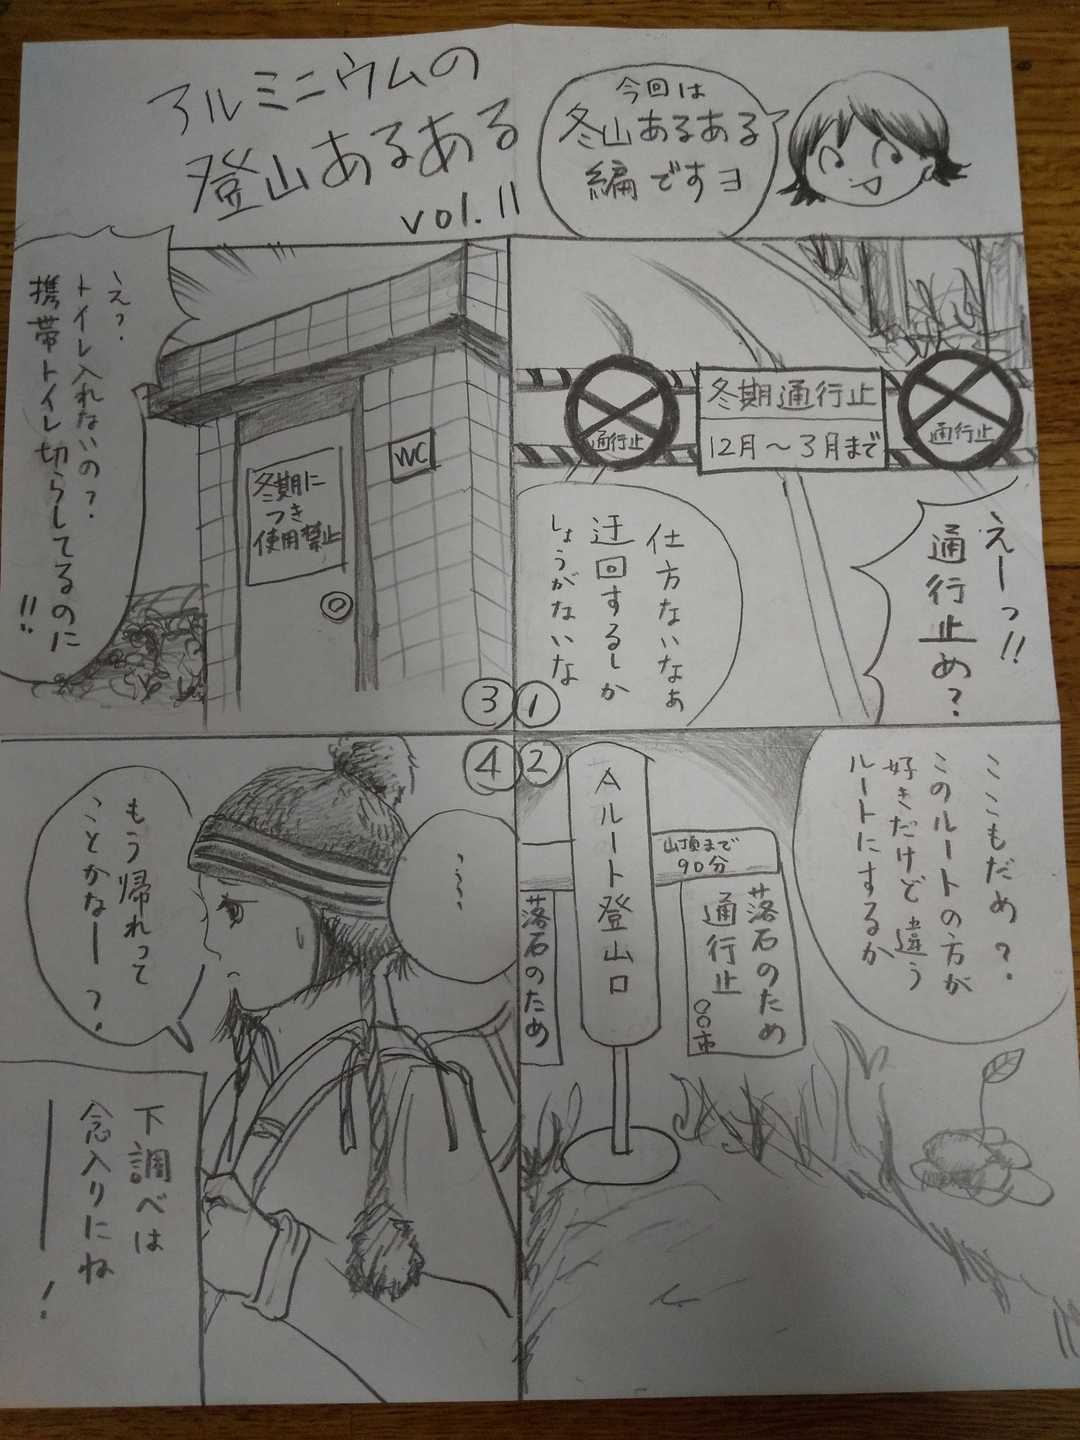 アルミニウムの
登山あるある
vol.11
今回は
冬山あるある
編ですヨ
冬期通行止
12月〜3月まで
通行止
通行止
えーっ!!
通行止め?
仕方ないなぁ
迂回するしか
しょうがないな
①
ここもだめ?
このルートの方が
好きだけど違う
ルートにするか
Aルート登山口
山頂まで
90分
落石のため
通行止
○○市
落石のため
②
えっ?
トイレ入れないの?
携帯トイレ切らしてるのに
!!
冬期に
つき
使用禁止
WC
③
④
もう帰れって
ことかなー?
下調べは
念入りにね
ー!